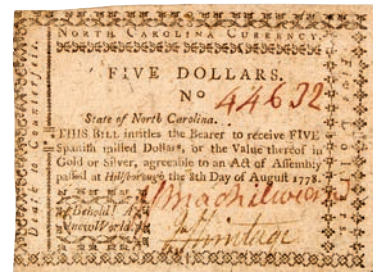 NORTH CAROLINA CURRENCY.
FIVE DOLLARS.
No 44632
State of North Carolina.
THIS BILL intitles the Bearer to receive FIVE
Spanish milled Dollars, or the Value thereof in
Gold or Silver, agreeable to an Act of Assembly
passed at Hillsborough the 8th Day of August 1778.
Behold! A
new World.
Death to Counterfeit
Five Dollars.